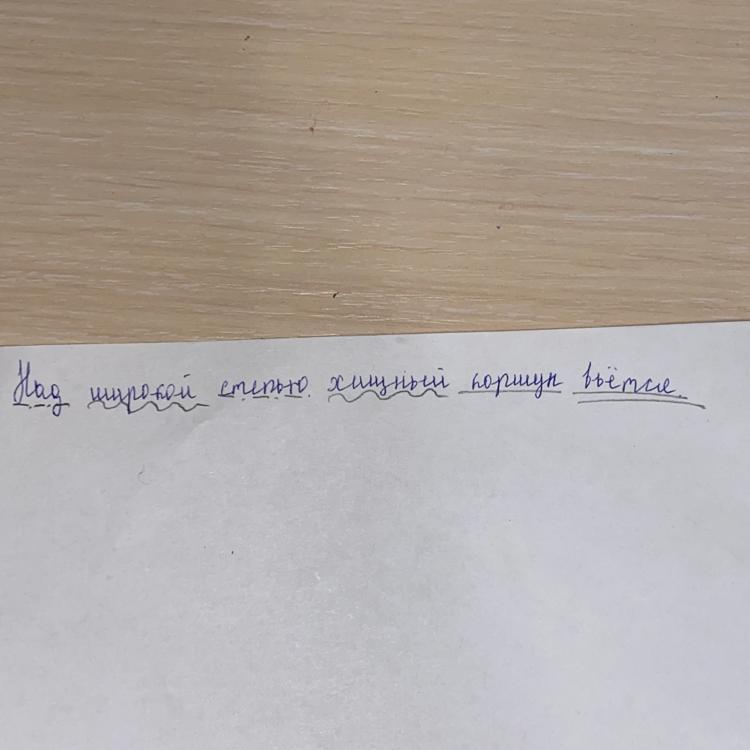 Над широкой степью хищный коршун вьётся.